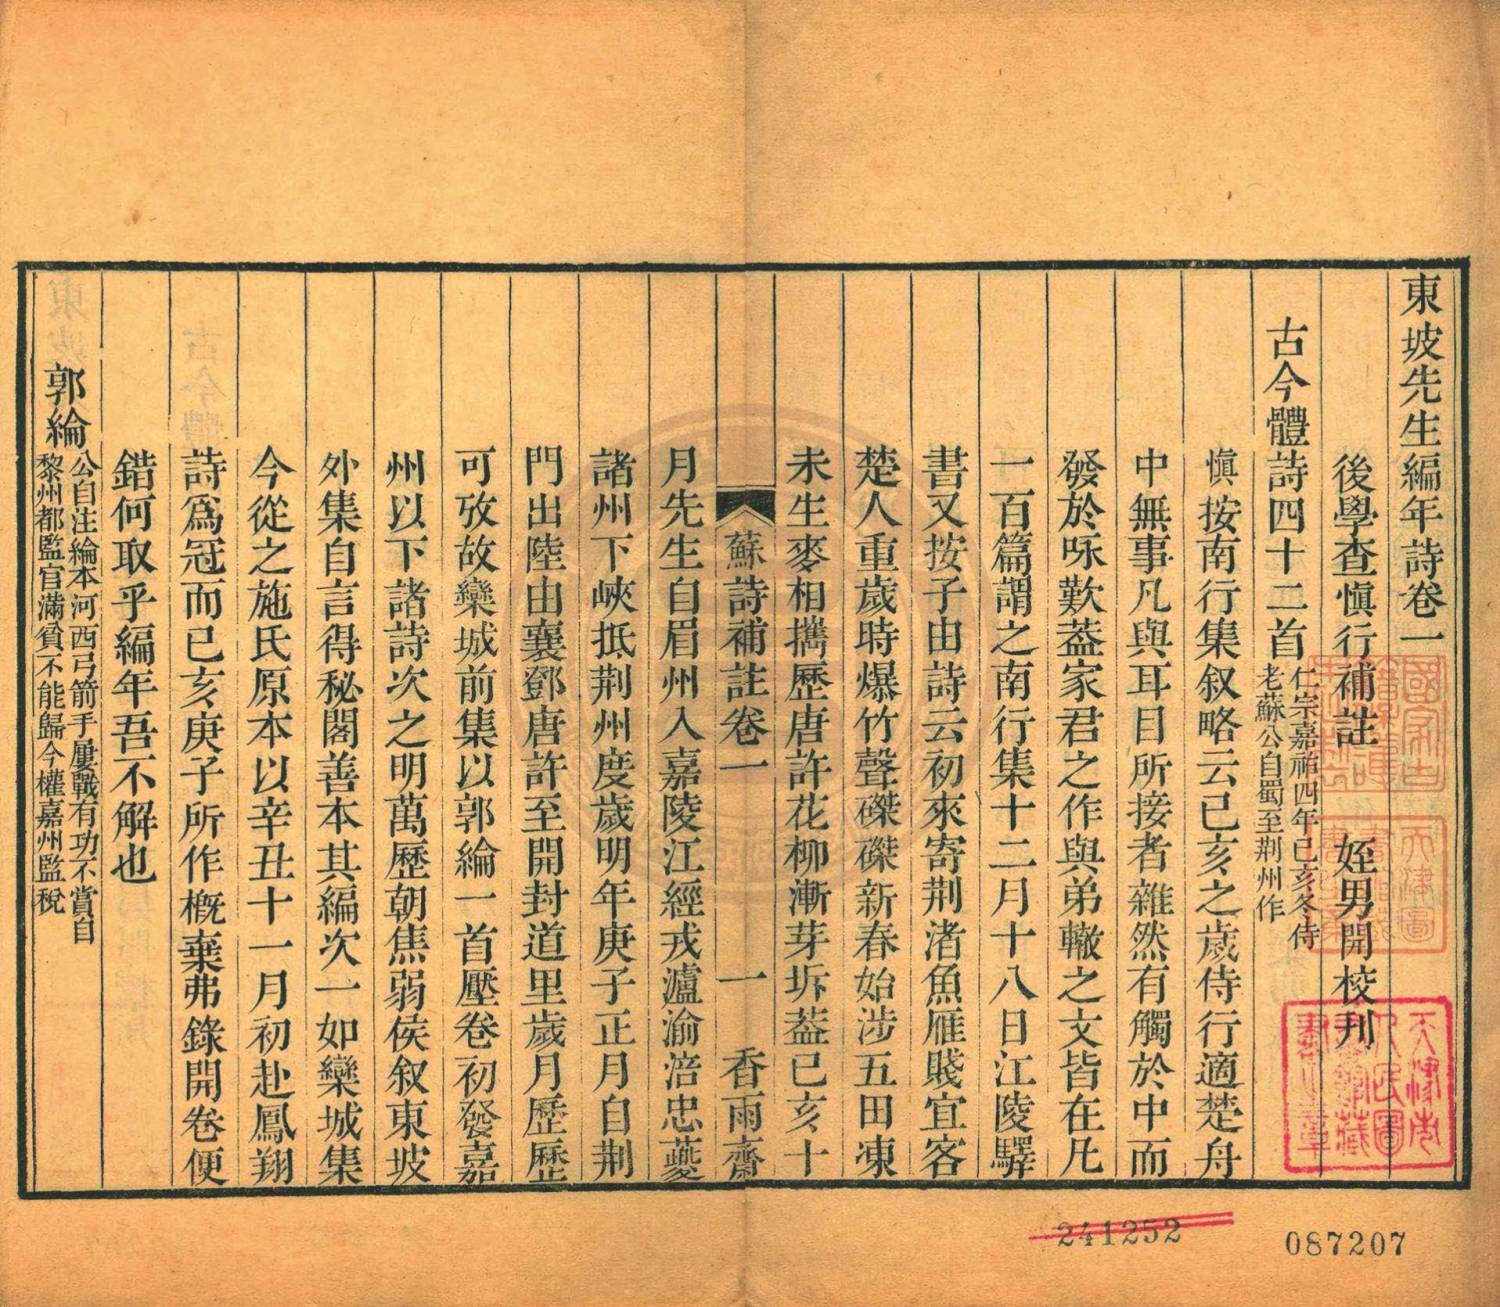 東坡先生編年詩卷一
後學查慎行補註 姪男開校刊
古今體詩四十二首
仁宗嘉祐四年己亥冬侍
老蘇公自蜀至荆州作
慎按南行集叙略云己亥之歲侍行適楚舟
中無事凡與耳目所接者雜然有觸於中而
發於咏歎葢家君之作與弟轍之文皆在凡
一百篇謂之南行集十二月十八日江陵驛
書又按子由詩云初來寄荆渚魚雁賤宜客
楚人重歲時爆竹聲磔磔新春始涉五田凍
未生麥相攜歷唐許花柳漸芽坼葢己亥十
蘇詩補註卷一 一 香雨齋
月先生自眉州入嘉陵江經戎瀘渝涪忠夔
諸州下峽抵荆州度歲明年庚子正月自荆
門出陸由襄鄧唐許至開封道里歲月歷歷
可攷故欒城前集以郭綸一首壓卷初發嘉
州以下諸詩次之明萬歷朝焦弱侯叙東坡
外集自言得秘閣善本其編次一如欒城集
今從之施氏原本以辛丑十一月初赴鳳翔
詩爲冠而己亥庚子所作概棄弗錄開卷便
錯何取乎編年吾不解也
郭綸
公自注綸本河西弓箭手屢戰有功不賞自
黎州都監官滿貧不能歸今權嘉州監稅
241252
087207